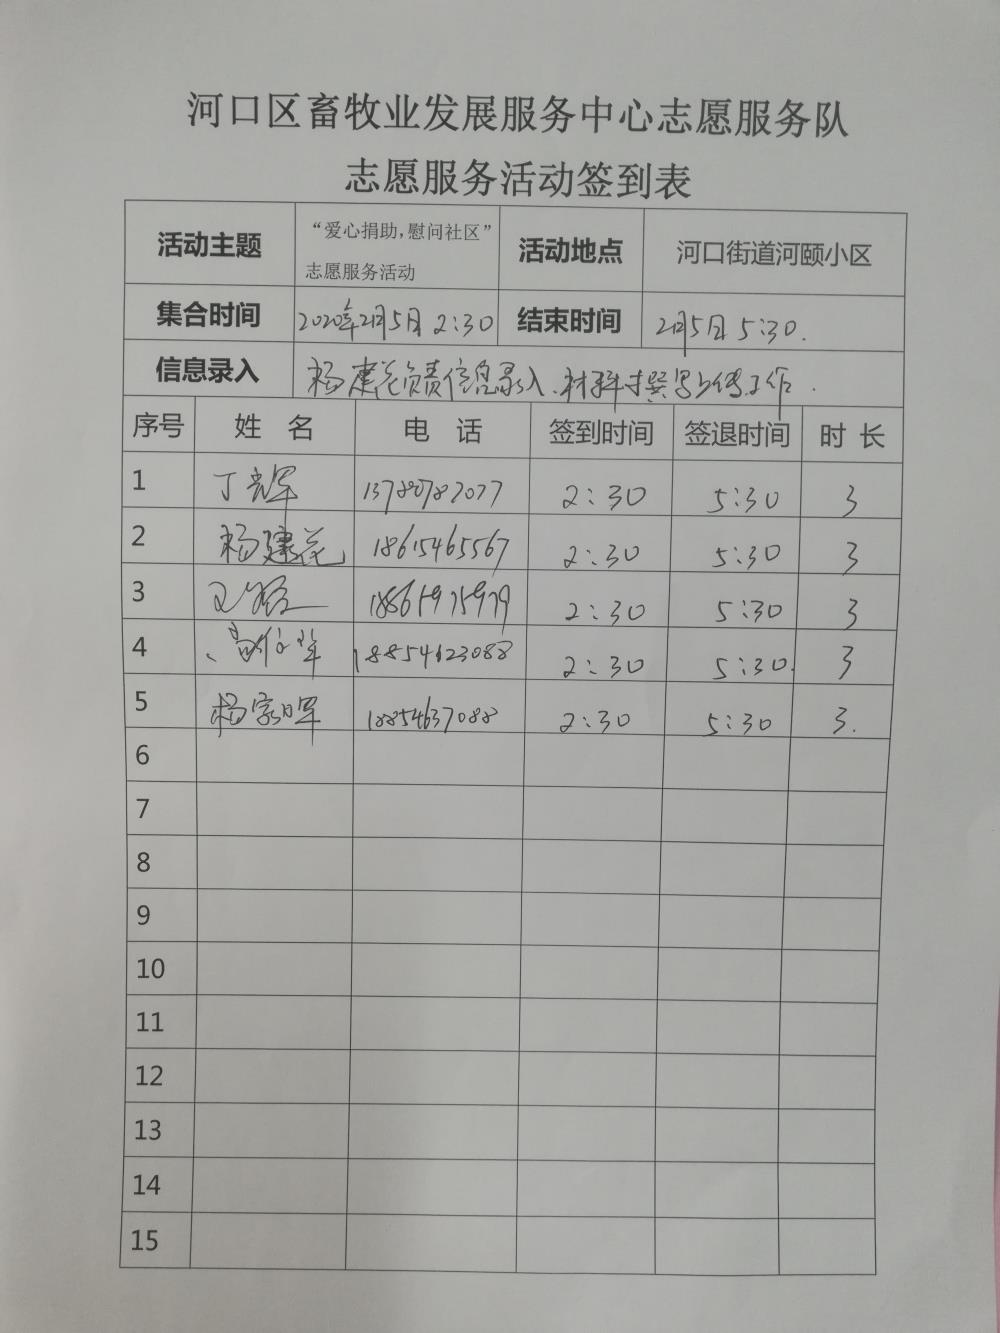 河口区畜牧业发展服务中心志愿服务队
志愿服务活动签到表
活动主题 “爱心捐助,慰问社区” 志愿服务活动 活动地点 河口街道河颐小区
集合时间 2020年2月5日 2:30 结束时间 2月5日 5:30.
信息录入 杨建花负责信息录入、材料撰写上传工作.
序号 姓 名 电 话 签到时间 签退时间 时 长
1 丁 2:30 5:30 3
2 杨建花 18615465567 2:30 5:30 3
3 18865975979 2:30 5:30 3
4 18854623088 2:30 5:30. 3
5 杨 18854637088 2:30 5:30 3.
6
7
8
9
10
11
12
13
14
15